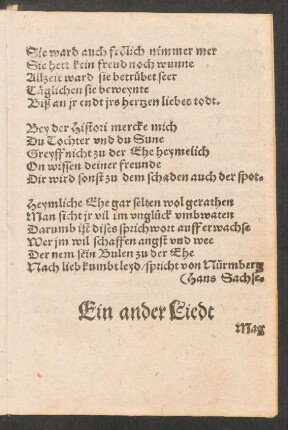 Sie ward auch frölich nimmer mer
Sie hett kein freud noch wunne
Allzeit ward sie betrübet seer
Täglichen sie beweynte
Biß an jr endt jrs hertzen liebes todt.
Bey der Histori mercke mich
Du Tochter vnd du Sune
Greyff nicht zu der Ehe heymelich
On wissen deiner freunde
Dir wird sonst zu dem schaden auch der spot.
Heymliche Ehe gar selten wol gerathen
Man sicht jr vil im vnglück vmbwaten
Darumb ist dises sprichwort auff erwachse
Wer jm wil schaffen angst vnd wee
Der nem sein Bulen zu der Ehe
Nach lieb kumbt leyd / spricht von Nürmberg
(Hans Sachse.
Ein ander Liedt
Mag